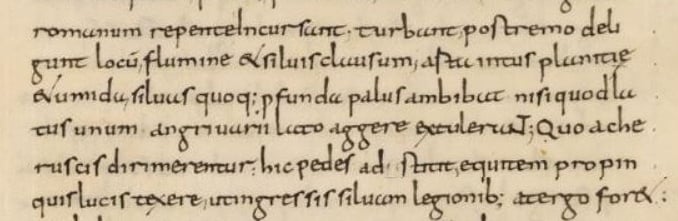 romanum repente incursant. turbant, postremo deli
gunt locū, flumine & siluis clausum, arta intus planitie
& umida, siluas quoq; pfunda palus ambibat nisi quod la
tus unum angriuarii lato aggere extulerant; Quo a che
ruscis dirimerentur; hic pedes ad stitit, equitem propin
quis lucis texere, ut ingressis siluam legionib; a tergo for&.